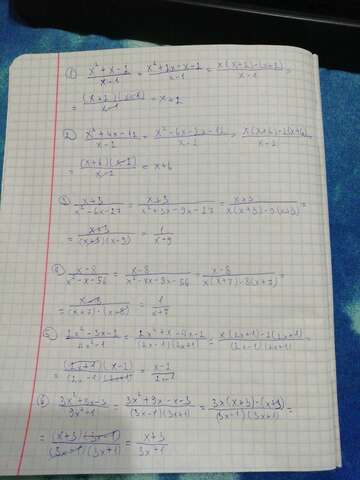 1) (x² + x - 2)/(x - 1) = (x² + 2x - x - 2)/(x - 1) = (x(x+2) - (x+2))/(x - 1) =
= ((x+2)(x-1))/(x-1) = x+2
2) (x² + 4x - 12)/(x - 2) = (x² + 6x - 2x - 12)/(x - 2) = (x(x+6) - 2(x+6))/(x - 2) =
= ((x+6)(x-2))/(x-2) = x+6
3) (x+3)/(x² - 6x - 27) = (x+3)/(x² + 3x - 9x - 27) = (x+3)/(x(x+3) - 9(x+3)) =
= (x+3)/((x+3)(x-9)) = 1/(x-9)
4) (x-8)/(x² - x - 56) = (x-8)/(x² + 7x - 8x - 56) = (x-8)/(x(x+7) - 8(x+7)) =
= (x-8)/((x+7)·(x-8)) = 1/(x+7)
5) (2x² - 3x - 2)/(4x² - 1) = (2x² + x - 4x - 2)/((2x-1)(2x+1)) = (x(2x+1) - 2(2x+1))/((2x-1)(2x+1))
= ((2x+1)(x-2))/((2x-1)(2x+1)) = (x-2)/(2x-1)
6) (3x² + 8x - 3)/(9x² - 1) = (3x² + 9x - x - 3)/((3x-1)(3x+1)) = (3x(x+3) - (x+3))/((3x-1)(3x+1)) =
= ((x+3)(3x-1))/((3x-1)(3x+1)) = (x+3)/(3x+1)